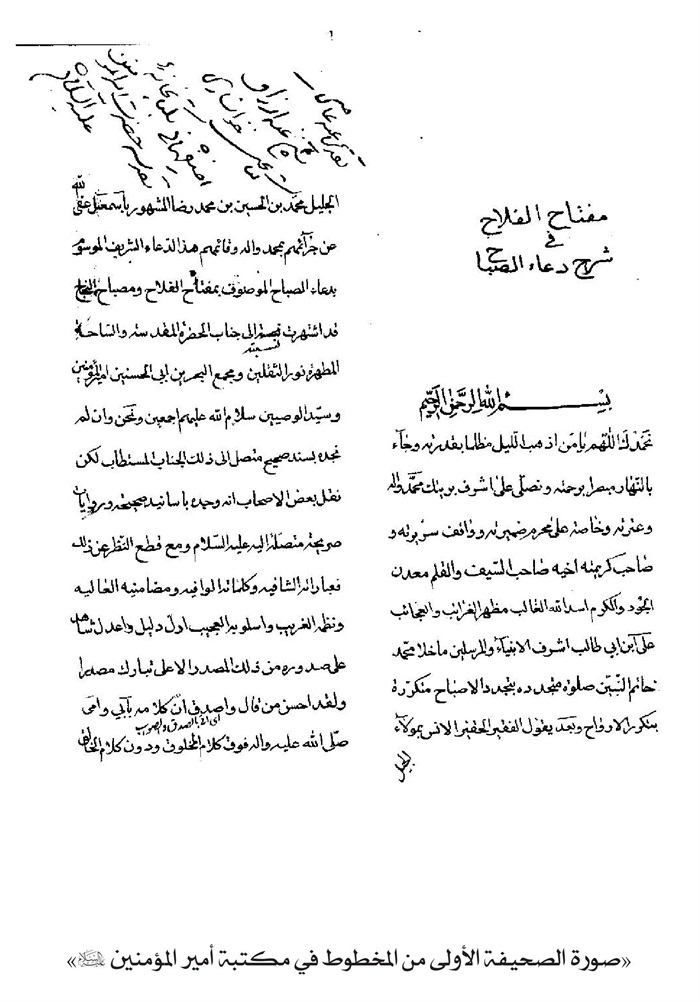 ١
مفتاح الفلاح
في
شرح دعاء الصباح
بسم الله الرحمن الرحيم
نحمدك اللهم يا من اذهب الليل مظلما بقدرته وجاء
بالنهار مبصرا برحمته ونصلي على اشرف بريتك محمد واله
وعترته وخاصة على محرم ضميرته وواقف سريرته و
صاحب كريمته اخيه صاحب السيف والقلم معدن
الجود والكرم اسد الله الغالب مظهر الغرائب والعجائب
على ابن ابي طالب اشرف الانبياء والمرسلين ما خلا محمد
خاتم النبيين صلوة متجدده بتجدد الاصباح متكررة
بتكرر الارواح وبعد يقول الفقير الحقير الانس بمولاه
الجليل
الجليل محمد بن الحسين بن محمد رضا المشهور باسمعيل عفى الله
عن جرائمهم بمحمد واله وفائهم هذا الدعاء الشريف الموسوم
بدعاء الصباح الموصوف بمفتاح الفلاح ومصباح النجاح
قد اشتهرت نسبته الى جناب الحضرة المقدسة والساحة
نسبته
المطهرة نور الثقلين ومجمع البحرين ابى الحسنين امير المؤمنين
وسيد الوصيين سلام الله عليهم اجمعين ونحن وان لم
نجده بسند صحيح متصل الى ذلك الجناب المستطاب لكن
نقل بعض الاصحاب انه وجده باسانيد صحيحة وروايات
صريحة متصلة اليه عليه السلام ومع قطع النظر عن ذلك
فعباراته الشافيه وكلماته الوافيه ومضامنيه العاليه
ونظمه الغريب واسلوبه العجيب اول دليل واعدل شاهد
على صدوره من ذلك المصدر الاعلى تبارك مصدرا
ولقد احسن من قال واصدق ان كلامه بابي وامي
اى اتى بالصدق والصواب
صلى الله عليه واله فوق كلام المخلوق ودون كلام الخالق
«صورة الصحيفة الأولى من المخطوط في مكتبة أمير المؤمنين»